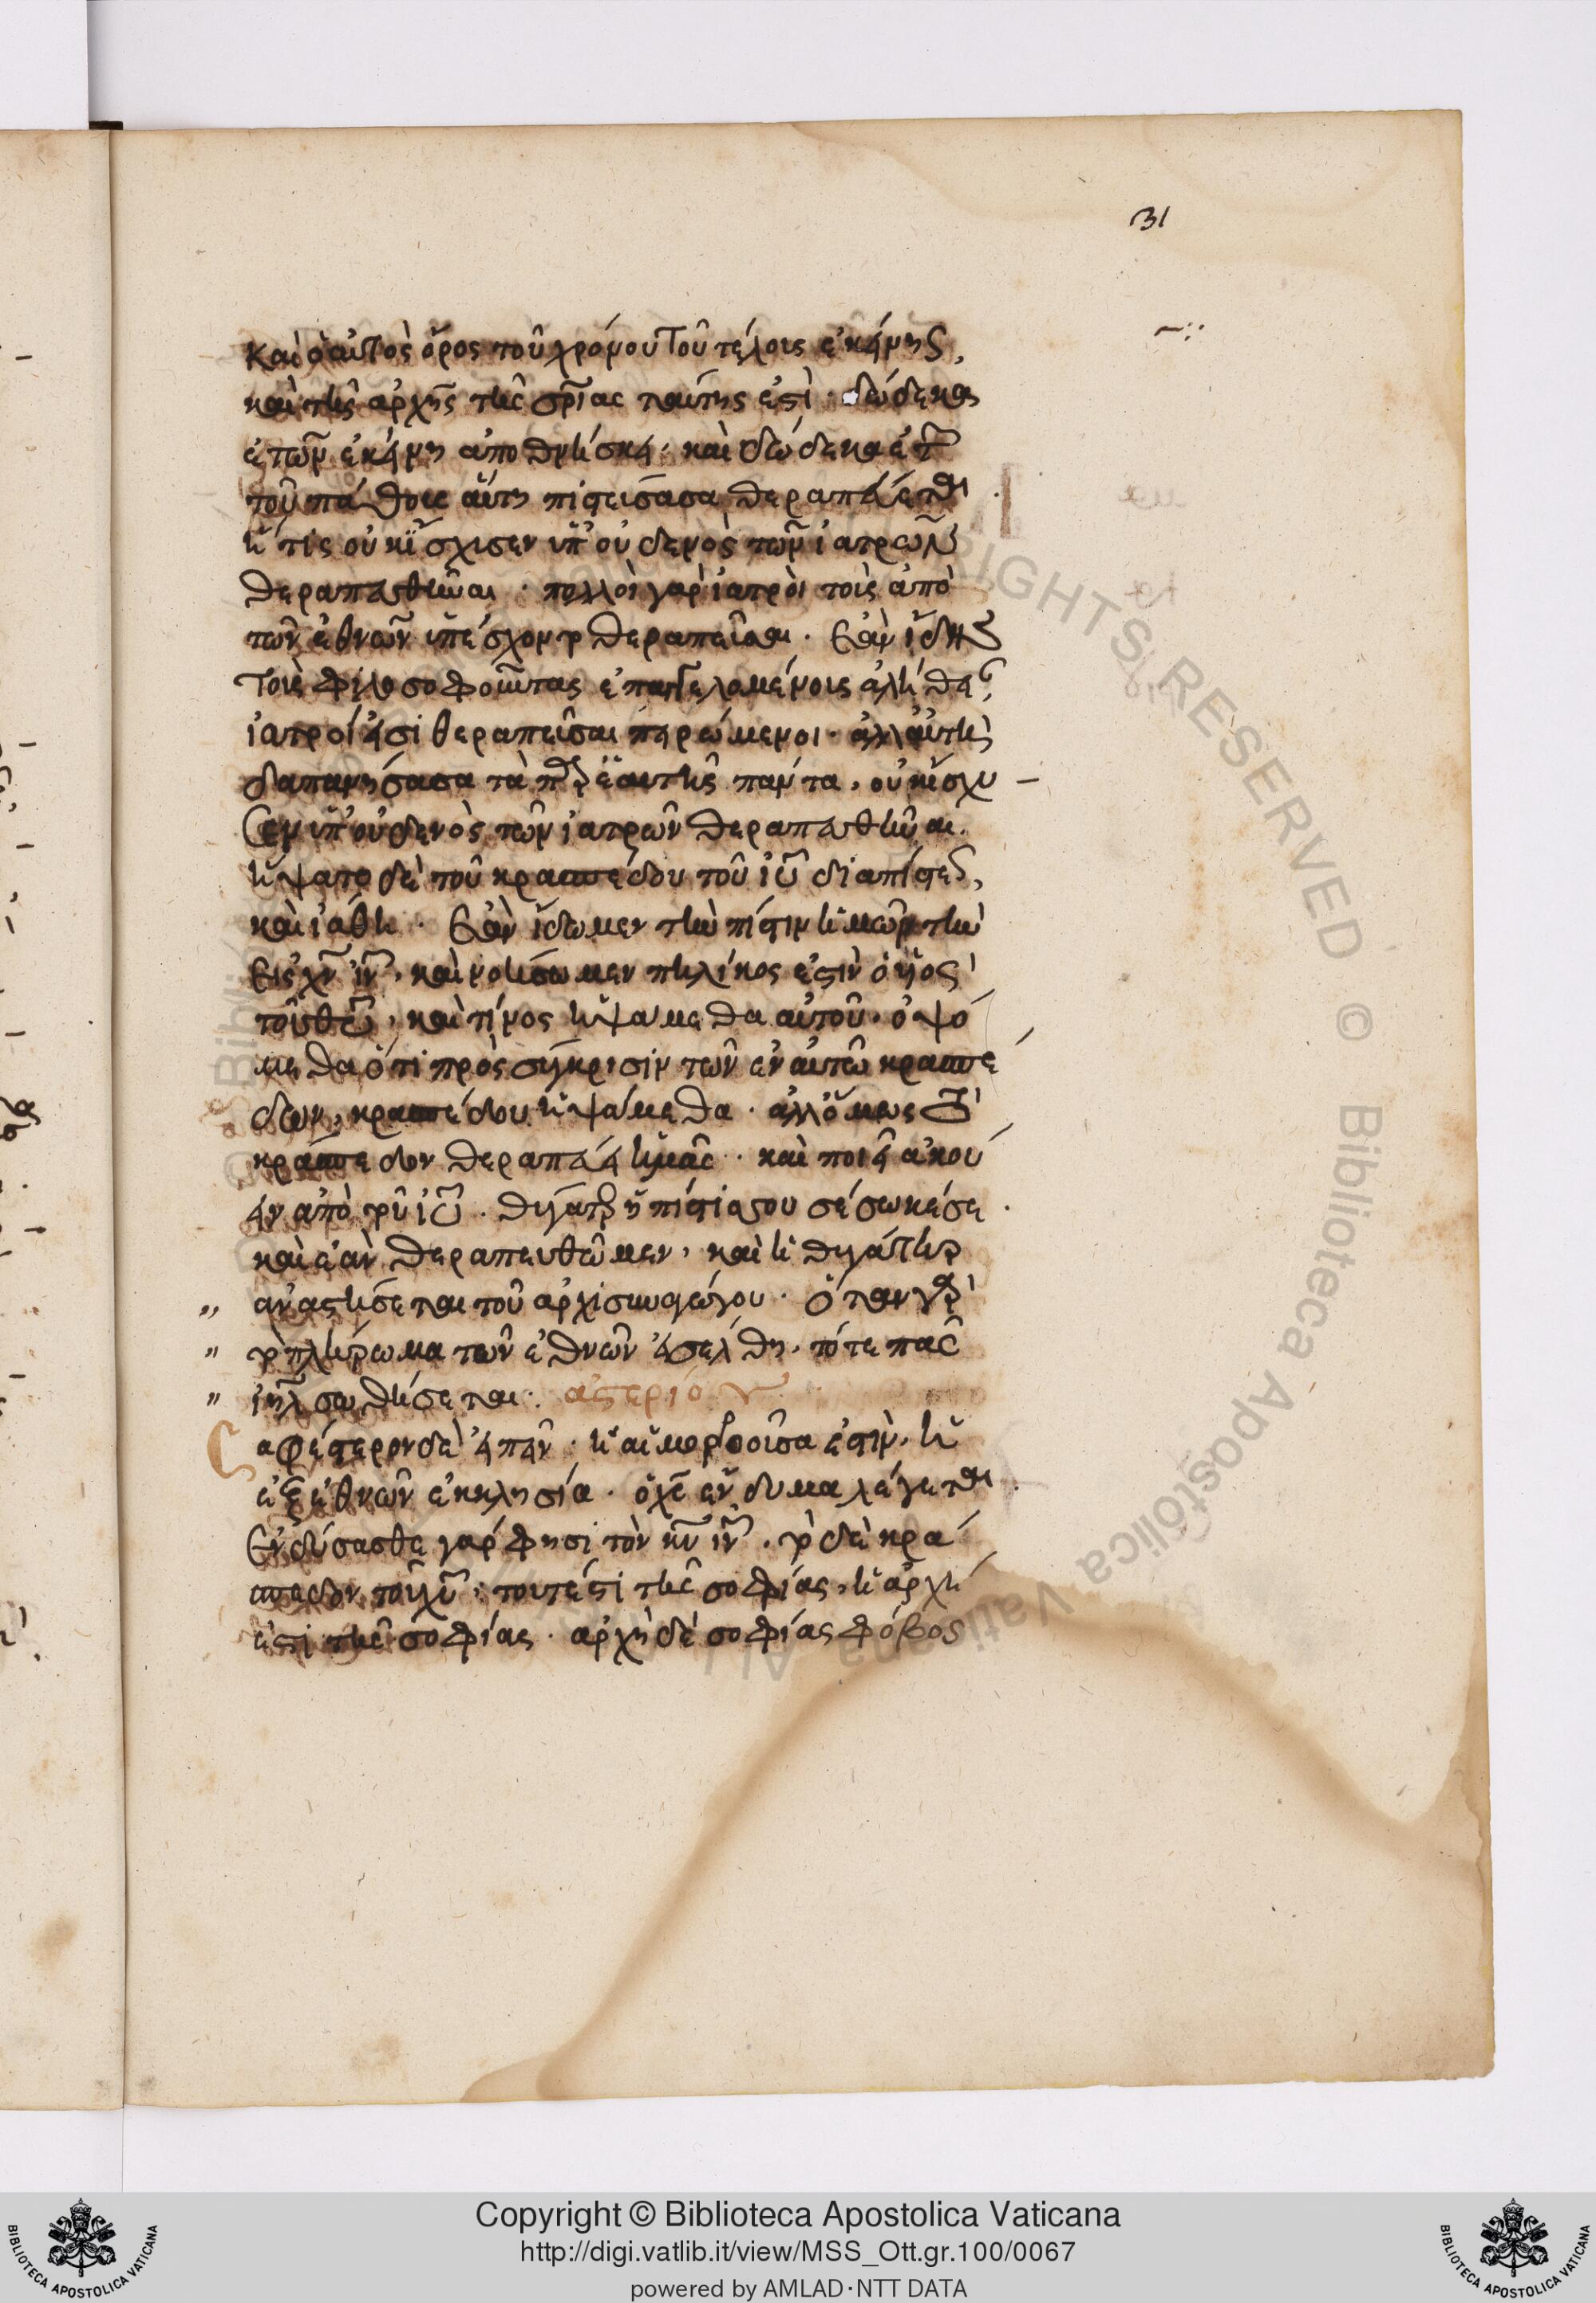 31
καὶ ὁ αὐτὸς ὅρος τοῦ χρόνου τοῦ τέλους ἐκείνης,
καὶ τῆς ἀρχῆς τῆς σρ̅ίας ταύτης ἐστὶ · δώδεκα
ἐτῶν ἐκείνη ἀποθνήσκει · καὶ δώδεκα ἐτ
τοῦ πάθους αὕτη πιστεύσασα θεραπεύεται ·
ἥτις οὐκ ἴσχυσεν ὑπ' οὐδενὸς τῶν ἰατρῶν
θεραπευθῆναι · πολλοὶ γὰρ ἰατροὶ τοῖς ἀπὸ
τῶν ἐθνῶν ὑπέσχοντο θεραπεῦσαι · Ἐὰν ἴδης
τοὺς φιλοσοφοῦντας ἐπαγγελομένους ἀλήθει,
ἰατροί εἰσι θεραπεῦσαι πειρώμενοι · ἀλλ' αὐτὴ
δαπανήσασα τὰ παρ' ἑαυτῆς πάντα, οὐκ ἴσχυ
σεν ὑπ' οὐδενὸς τῶν ἰατρῶν θεραπευθῆναι.
ἥψατο δὲ τοῦ κρασπέδου τοῦ ἰυ̅ διὰ πίστε,
καὶ ἰάθη · Ἐὰν ἴδωμεν τὴν πίστιν ἡμῶν τὴν
εἰς χν̅ ἰν̅, καὶ νοήσωμεν πηλίκος ἐστὶν ὁ υἱὸς
τοῦ θυ̅, καὶ τίνος ἡψάμεθα αὐτοῦ · ὀψό
μεθα ὅτι πρὸς σύγκρισιν τῶν ἐν αὐτῶ κρασπέ
δων, κρασπέδου ἡψάμεθα · ἀλλ' ὅμως τὸ
κράσπεδον θεραπεύει ἡμᾶς · καὶ ποιεῖ ἀκού
ειν ἀπὸ τοῦ ἰυ̅ · θύγατερ ἡ πίστις σου σέσωκέ σε ·
καὶ ἐὰν θεραπευθῶμεν, καὶ ἡ θυγάτηρ
ἀναστήσεται τοῦ ἀρχισυναγώγου · Ὅταν γὰρ
τὸ πλήρωμα τῶν ἐθνῶν εἰσέλθη, τότε πᾶς
ἰηλ̅ σωθήσεται · ἀστερίου
αφέστερον δὲ εἰπεῖν · ἡ αἱμορροοῦσα ἐστὶν, ἡ
ἐξ ἐθνῶν ἐκκλησία · ὁ χς̅ ἔνδυμα λέγεται ·
Ἐνδύσασθε γάρ φησι τὸν κν̅ ἰν̅ · τὸ δὲ κρά
σπεδον τοῦ χυ̅ · τουτέστι τῆς σοφίας, ἡ ἀρχή
ἐστι τῆς σοφίας · ἀρχὴ δὲ σοφίας φόβος
Copyright © Biblioteca Apostolica Vaticana
http://digi.vatlib.it/view/MSS_Ott.gr.100/0067
powered by AMLAD·NTT DATA